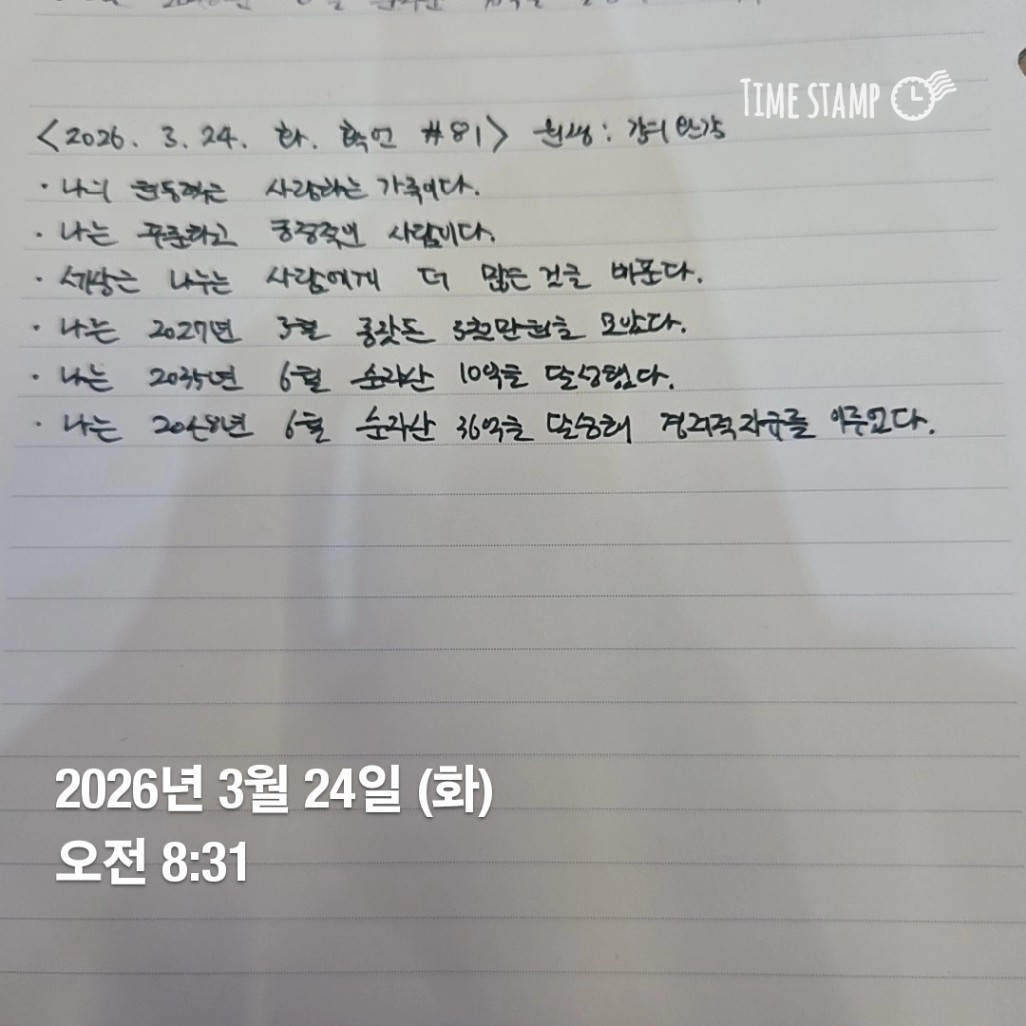 TIME STAMP
<2026. 3. 24. 화. 확언 #81>
· 나의 원동력은 사랑하는 가족이다.
· 나는 꾸준하고 긍정적인 사람이다.
· 세상은 나누는 사람에게 더 많은 것을 베푼다.
· 나는 2027년 3월 종잣돈 3천만원을 모았다.
· 나는 2035년 6월 순자산 10억을 달성했다.
· 나는 2048년 6월 순자산 36억을 달성해 경제적자유를 이루었다.
2026년 3월 24일 (화)
오전 8:31